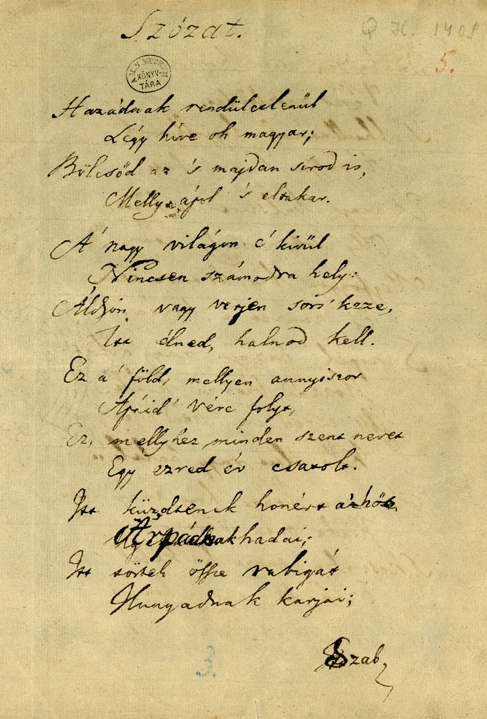 Szózat.
Q H. 1408
5.
KÖNYV-
TÁRA
Hazádnak rendületlenül
Légy híve oh magyar;
Bölcsőd az 's majdan sírod is,
Melly ápol 's eltakar.
A' nagy világon e' kívül
Nincsen számodra hely:
Áldjon vagy verjen sors' keze,
Itt élned, halnod kell.
Ez a' föld, mellyen annyiszor
Apáid' vére folyt,
Ez, mellyhez minden szent nevet
Egy ezred év csatolt.
Itt küzdtenek honért a' hős
Árpádnak hadai;
Itt törtek össze rabigát
Hunyadnak karjai;
Szab